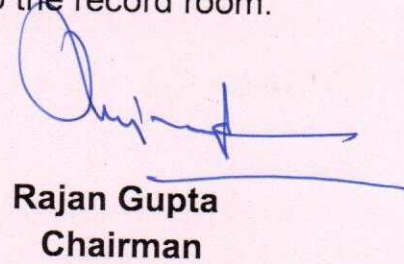 the record room.
Rajan Gupta
Chairman